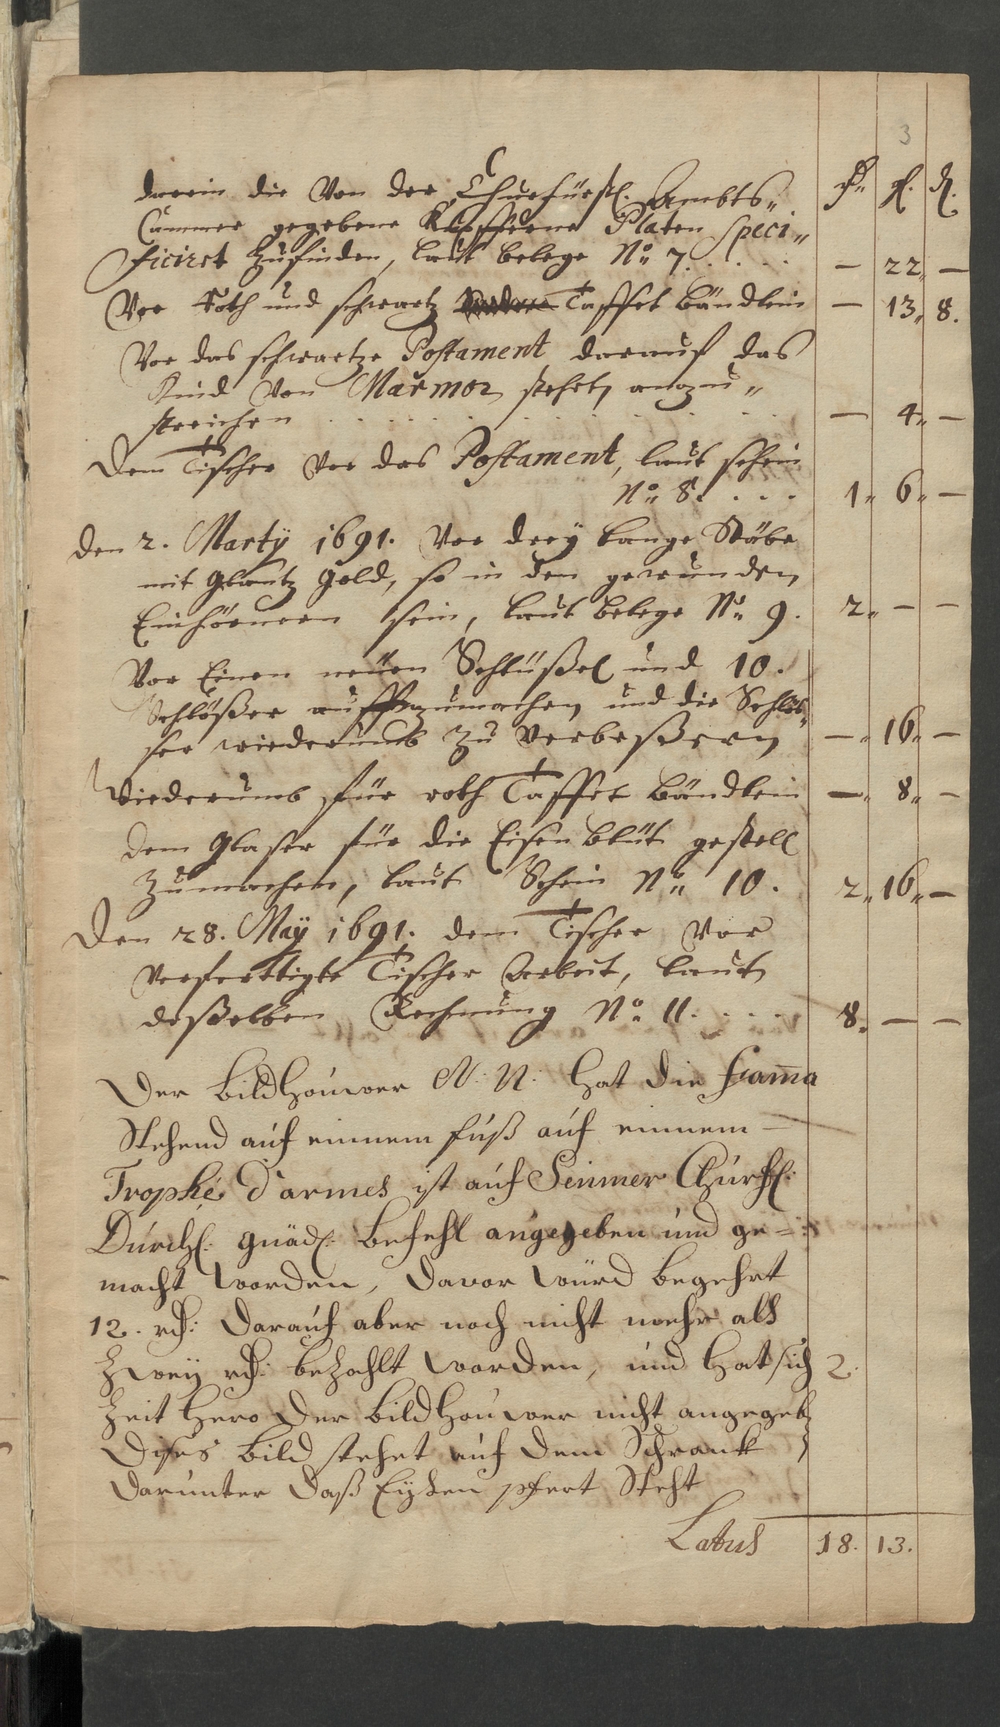 3
rth. gl. d.
darein die Von der Churfürstl. Ambts„
Cammer gegebene Kupfferne Platen speci„
ficiret zufinden, laut belege No 7. . . . . . — 22„ —
Vor Roth und schwartz Taffet bändlein — 13„ 8.
Vor das schwartze Postament darauf das
Kind Von Marmor stehet, anzu„
streichen . . . . . . . . . . — 4„ —
Dem Tischer vor das Postament, laut schein
No 8. . . . 1„ 6„ —
Den 2. Martÿ 1691. Vor dreÿ lange Stäbe
mit Glantz Gold, so in den gewunden
Einhörnern sein, laut belege No 9. 2„ — —
Vor Einen neüen Schlüßel und 10.
Schlößer auffzumachen und die Schlöß„
ser wiederumb zu verbeßern —„ 16„ —
Wiederumb für roth Taffet bändlein —„ 8„ —
Dem Glaser für die Eisen blüt gestell
zumachen, laut Schein No 10. 2„ 16„ —
Den 28. Maÿ 1691. dem Tischer vor
verferttigte Tischer Arbeit, laut
deßelben Rechnung No 11. . . . . 8„ — —
Der bildhouwer N: N: hat die fama
Stehend auf einnem fuß auf einnem —
Trophée d'armes ist auf Seinner Churfl:
Durchl: gnäd: befehl angegeben und ge=
macht worden, davor würd begehrt
12. rth: darauf aber noch nicht mehr als
Zweÿ rth: bezahlt worden, und hat sich 2.
Zeit hero der bildhouwer nicht angegeb
Dises bild stehet auf dem Schrank
darunter daß pfert Steht
Latus 18. 13.